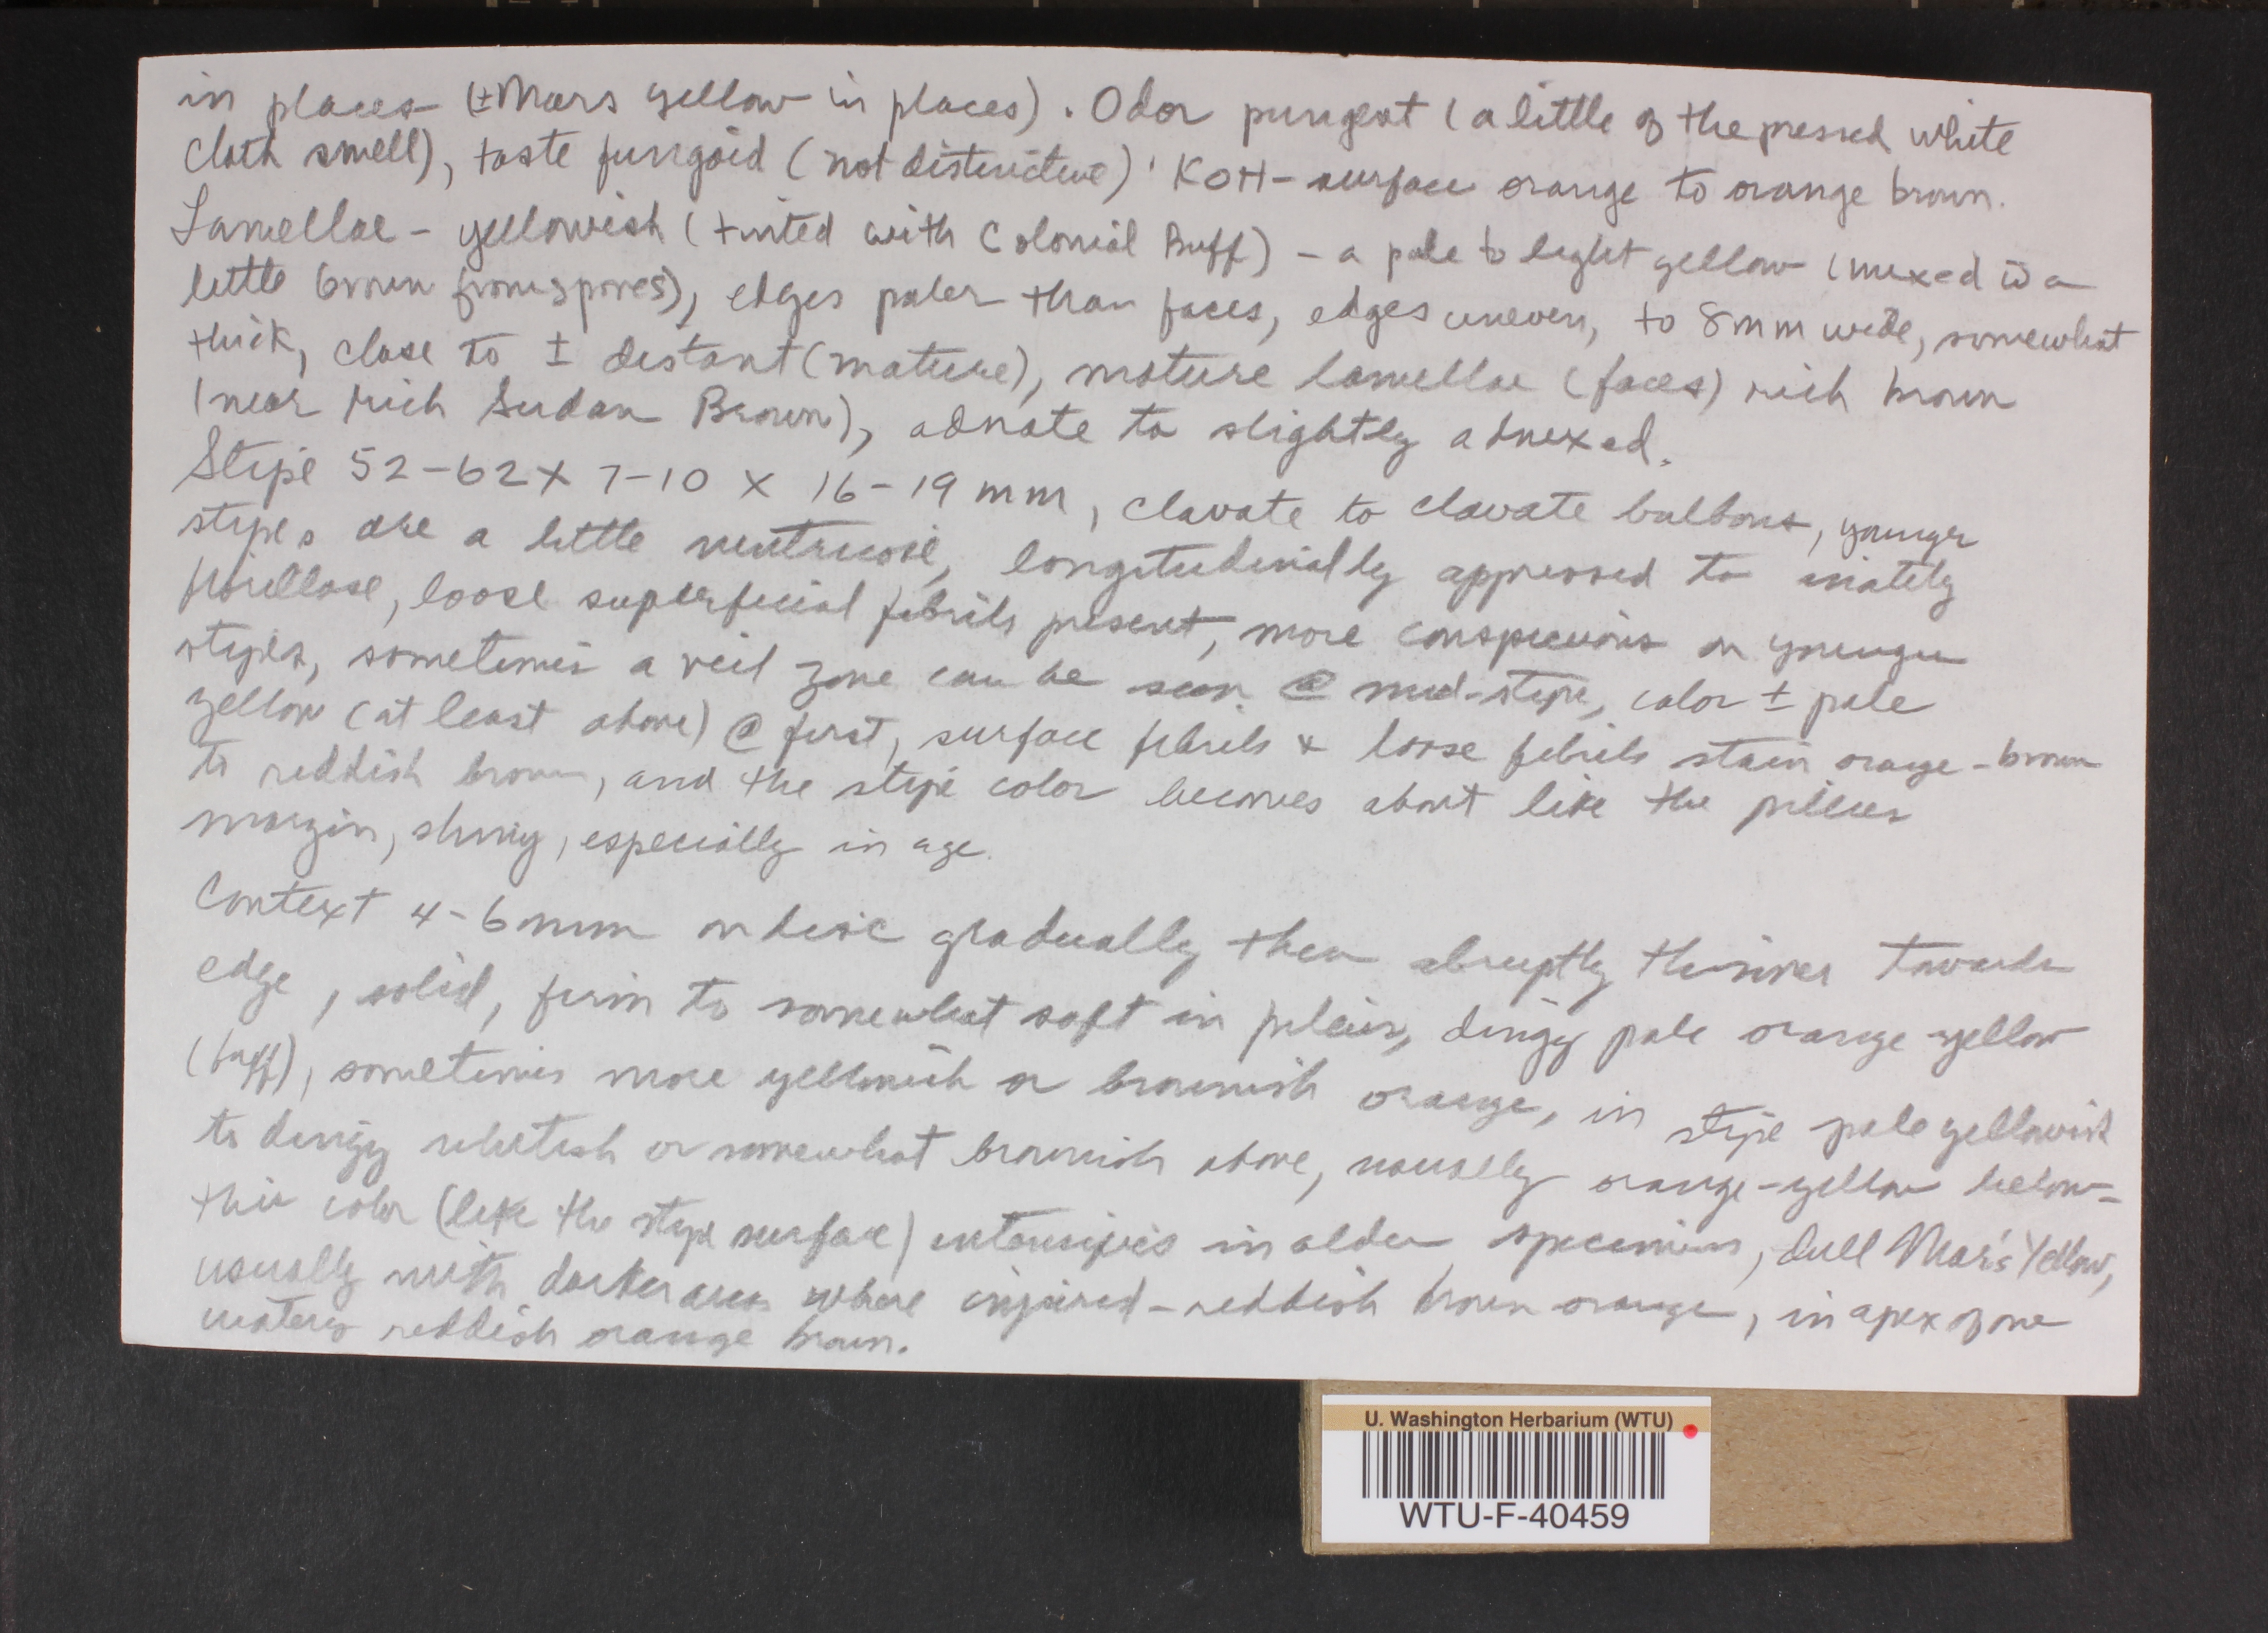 in places (± Mars yellow in places). Odor pungent (a little of the pressed white
cloth smell), taste fungoid (not distinctive). KOH - surface orange to orange brown.
Lamellae - yellowish (tinted with Colonial Buff) - a pale to light yellow (mixed w̄ a
little brown from spores), edges paler than faces, edges uneven, to 8mm wide, somewhat
thick, close to ± distant (mature), mature lamellae (faces) rich brown
(near rich Sudan Brown), adnate to slightly adnexed.
Stipe 52-62 X 7-10 X 16-19 mm, clavate to clavate bulbous, younger
stipes are a little ventricose, longitudinally appressed to innately
fibrillose, loose superficial fibrils present, more conspicuous on younger
stipes, sometimes a veil zone can be seen @ mid-stipe, color ± pale
yellow (at least above) @ first, surface fibrils & loose fibrils stain orange-brown
to reddish brown, and the stipe color becomes about like the pileus
margin, shiny, especially in age.
Context 4-6mm on disc gradually then abruptly thinner towards
edge, solid, firm to somewhat soft in pileus, dingy pale orange-yellow
(buff), sometimes more yellowish or brownish orange, in stipe pale yellowish
to dingy whitish or somewhat brownish above, usually orange-yellow below-
this color (like the stipe surface) intensifies in older specimens, dull Mars Yellow,
usually with darker areas where injured - reddish brown orange, in apex of one
watery reddish orange brown.
U. Washington Herbarium (WTU)
WTU-F-40459